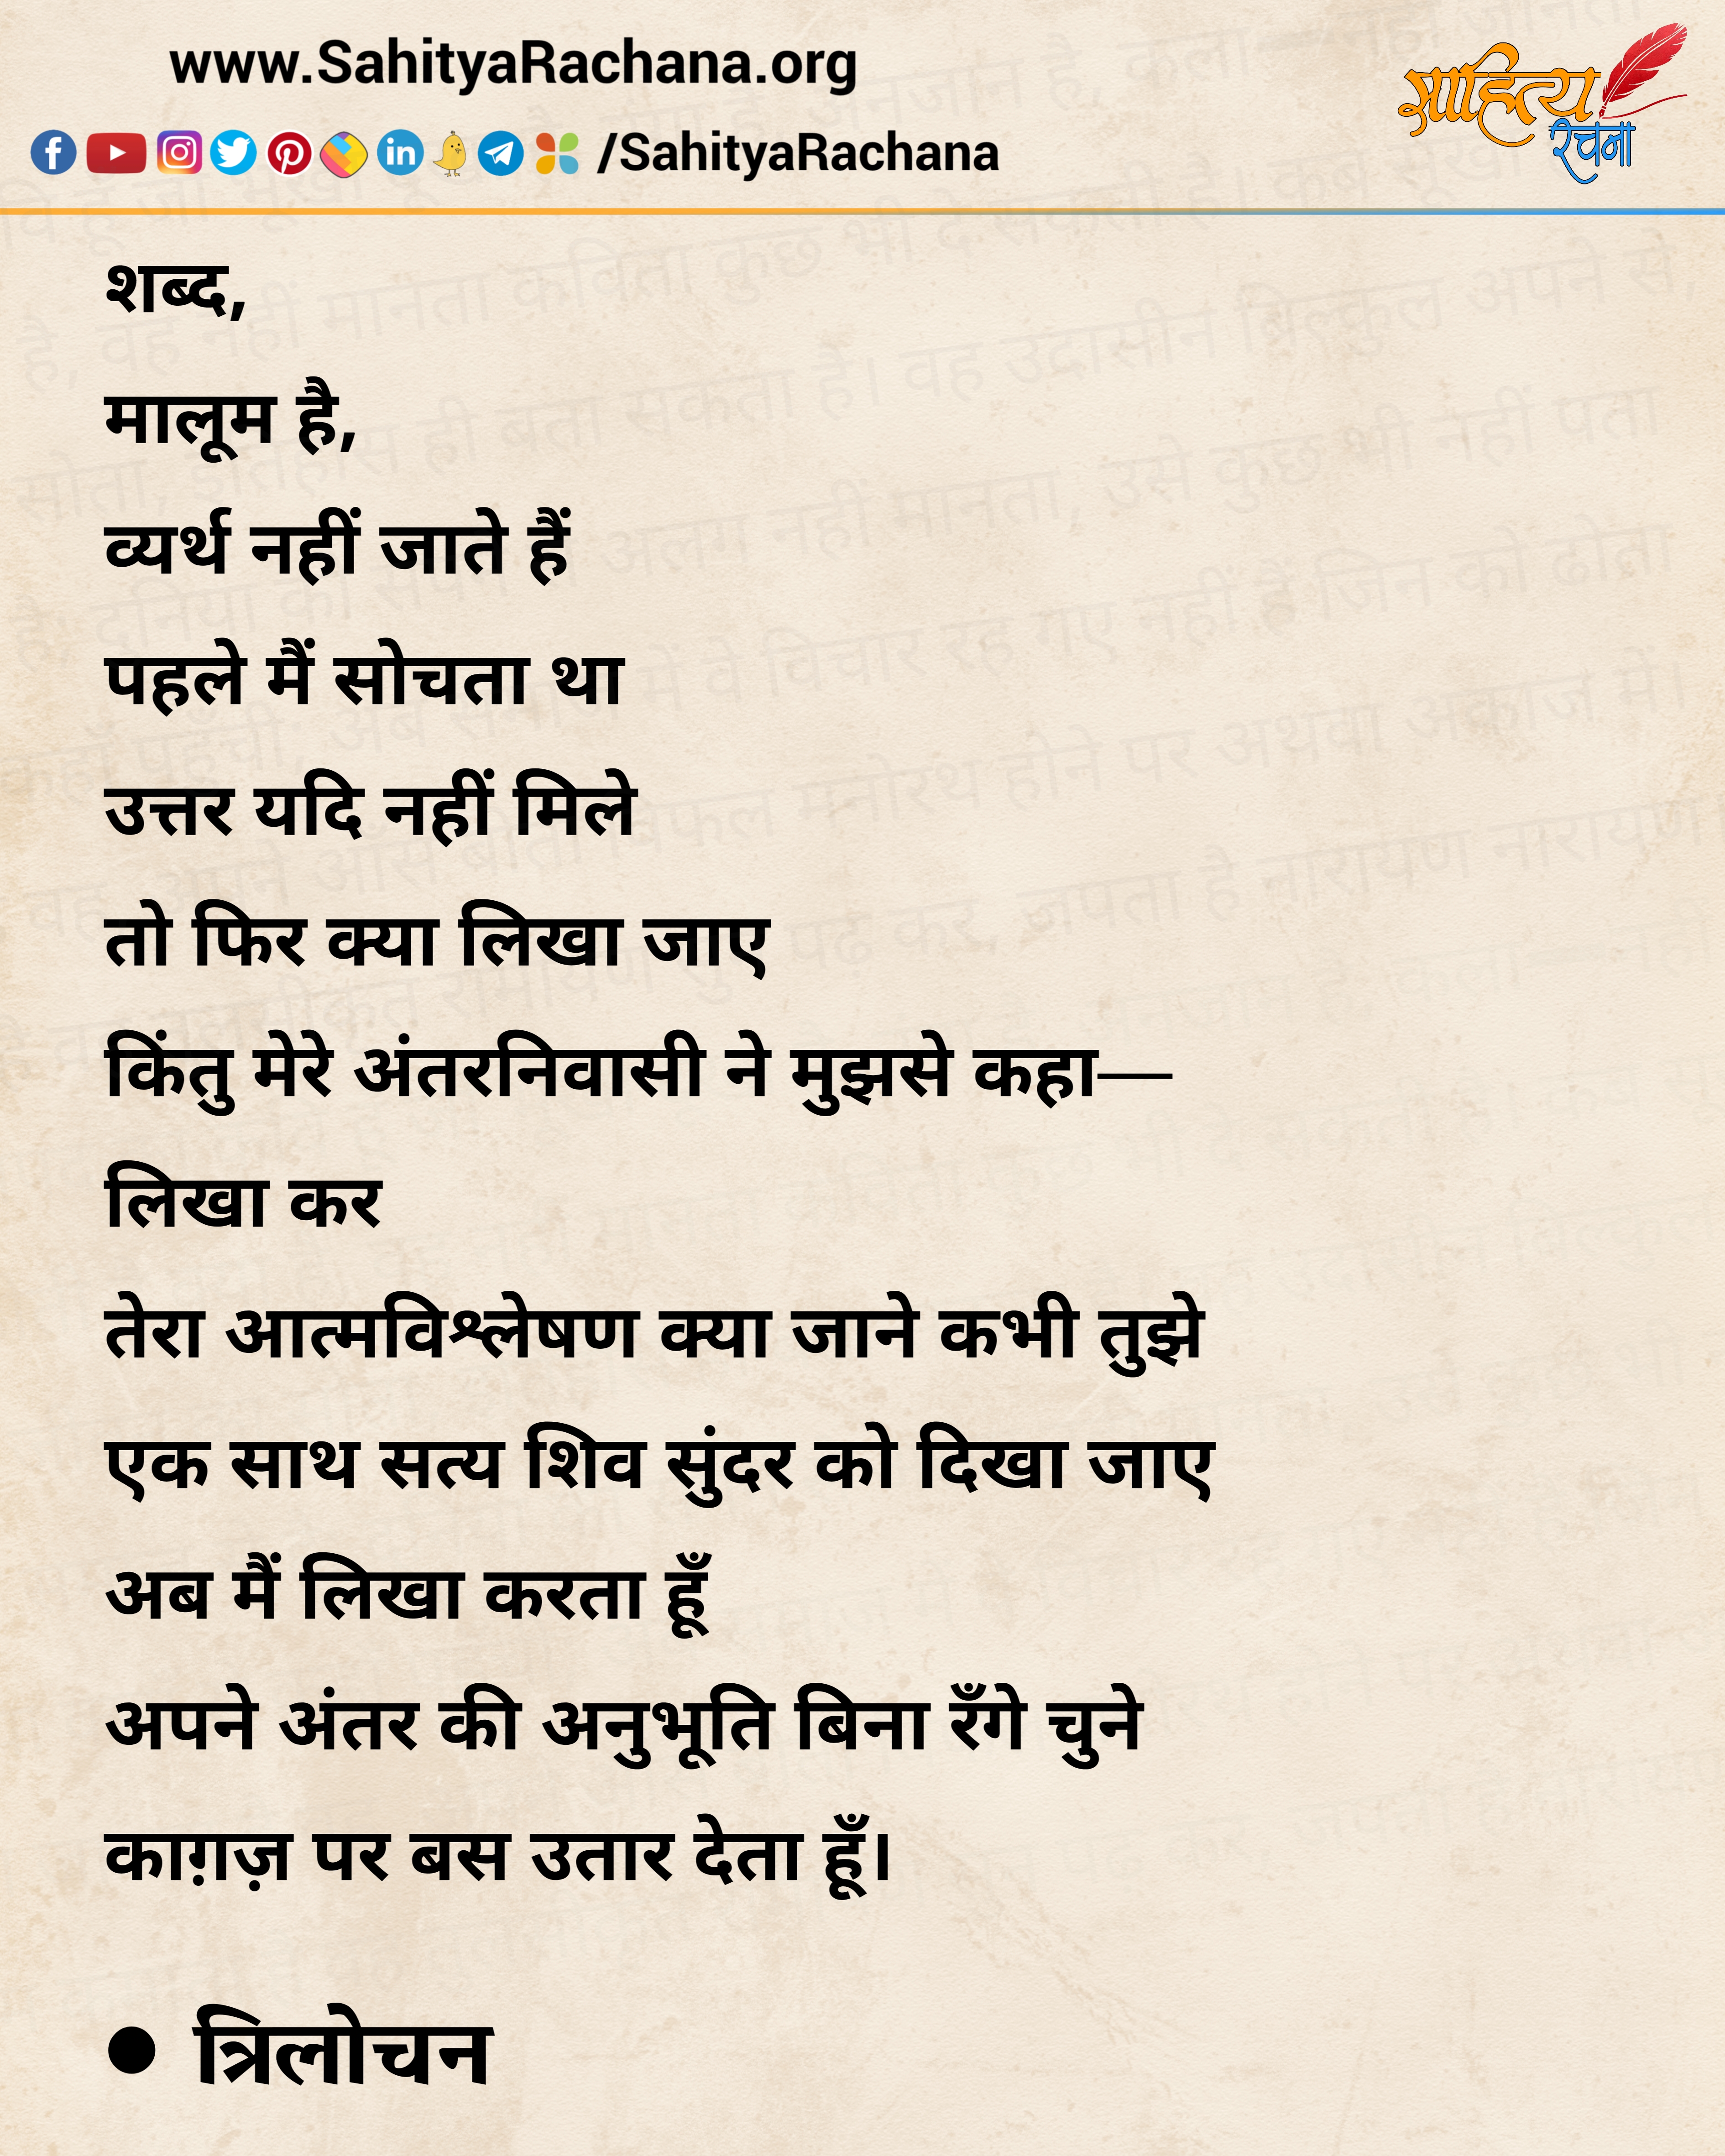 www.SahityaRachana.org
साहित्य
रचना
/SahityaRachana
शब्द,
मालूम है,
व्यर्थ नहीं जाते हैं
पहले मैं सोचता था
उत्तर यदि नहीं मिले
तो फिर क्या लिखा जाए
किंतु मेरे अंतरनिवासी ने मुझसे कहा—
लिखा कर
तेरा आत्मविश्लेषण क्या जाने कभी तुझे
एक साथ सत्य शिव सुंदर को दिखा जाए
अब मैं लिखा करता हूँ
अपने अंतर की अनुभूति बिना रँगे चुने
काग़ज़ पर बस उतार देता हूँ।
● त्रिलोचन